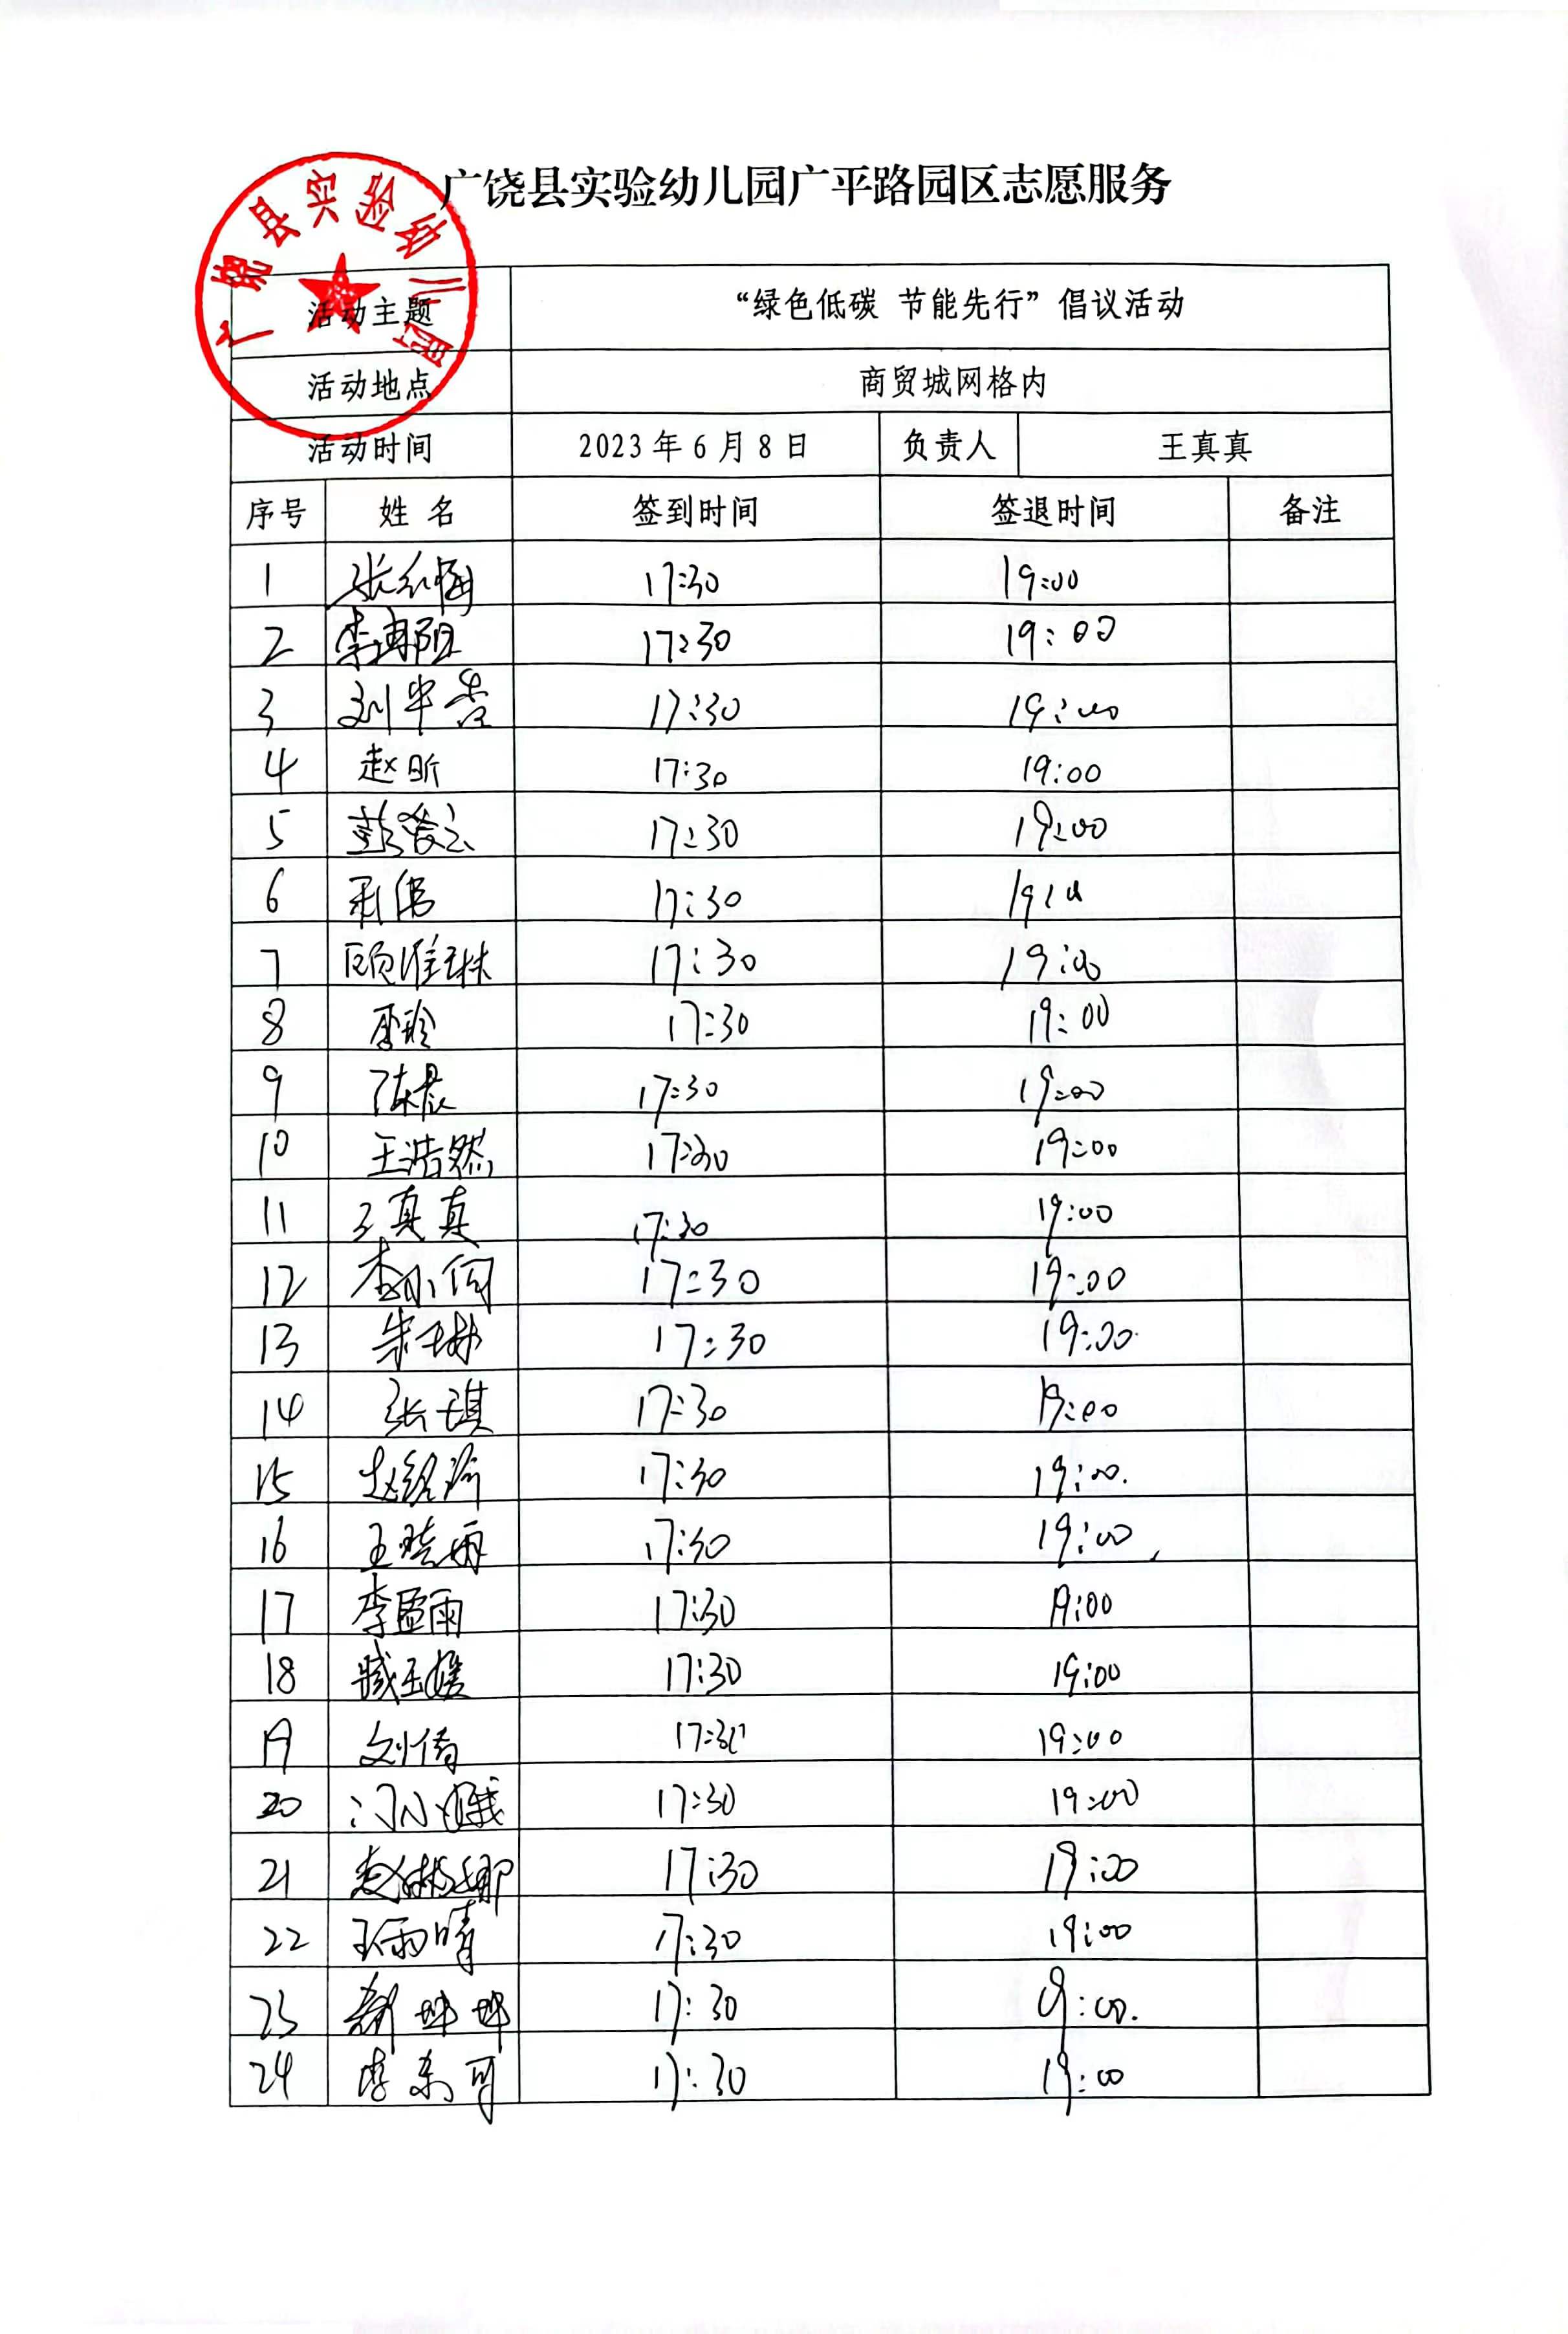 广饶县实验幼儿园广平路园区志愿服务
广饶县实验幼儿园
活动主题 “绿色低碳 节能先行”倡议活动
活动地点 商贸城网格内
活动时间 2023年6月8日 负责人 王真真
序号 姓名 签到时间 签退时间 备注
1 张红梅 17:30 19:00
2 李 17:30 19:00
3 刘 17:30 19:00
4 赵昕 17:30 19:00
5 彭 17:30 19:00
6 17:30 19:00
7 顾雅琳 17:30 19:00
8 李玲 17:30 19:00
9 陈晨 17:30 19:00
10 王浩然 17:30 19:00
11 王真真 17:30 19:00
12 李小何 17:30 19:00
13 朱琳 17:30 19:00
14 张琪 17:30 19:00
15 赵 17:30 19:00
16 王晓雨 17:30 19:00
17 李孟雨 17:30 19:00
18 臧玉媛 17:30 19:00
19 刘倩 17:30 19:00
20 门小娥 17:30 19:00
21 赵娜 17:30 19:00
22 王雨晴 17:30 19:00
23 坤坤 17:30 19:00
24 李东可 17:30 19:00